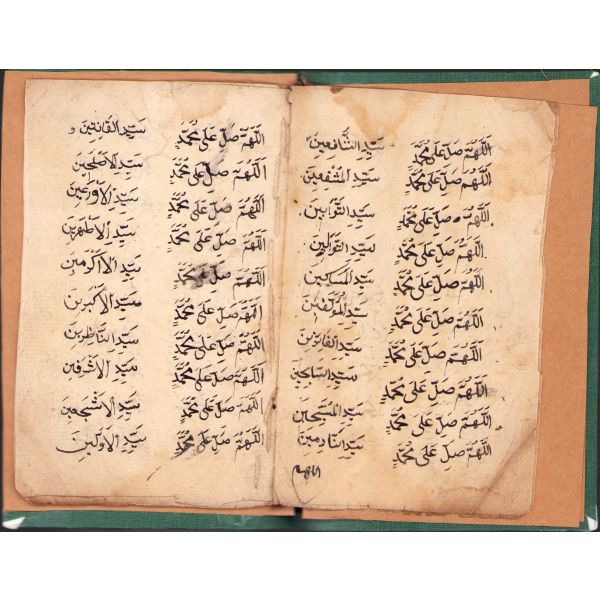 اَللّٰهُمَّ صَلِّ عَلٰى مُحَمَّدٍ سَيِّدِ الشَّافِعِينَ
اَللّٰهُمَّ صَلِّ عَلٰى مُحَمَّدٍ سَيِّدِ المُشَفَّعِينَ
اَللّٰهُمَّ صَلِّ عَلٰى مُحَمَّدٍ سَيِّدِ التَّوَّابِينَ
اَللّٰهُمَّ صَلِّ عَلٰى مُحَمَّدٍ سَيِّدِ القَوَّالِينَ
اَللّٰهُمَّ صَلِّ عَلٰى مُحَمَّدٍ سَيِّدِ المَسَاكِينَ
اَللّٰهُمَّ صَلِّ عَلٰى مُحَمَّدٍ سَيِّدِ المُؤَلِّفِينَ
اَللّٰهُمَّ صَلِّ عَلٰى مُحَمَّدٍ سَيِّدِ الفَائِزِينَ
اَللّٰهُمَّ صَلِّ عَلٰى مُحَمَّدٍ سَيِّدِ
اَللّٰهُمَّ صَلِّ عَلٰى مُحَمَّدٍ سَيِّدِ المُسَبِّحِينَ
اَللّٰهُمَّ صَلِّ عَلٰى مُحَمَّدٍ سَيِّدِ النَّادِمِينَ
اللهم
اَللّٰهُمَّ صَلِّ عَلٰى مُحَمَّدٍ سَيِّدِ القَانِتِينَ
اَللّٰهُمَّ صَلِّ عَلٰى مُحَمَّدٍ سَيِّدِ الاَصْلَحِينَ
اَللّٰهُمَّ صَلِّ عَلٰى مُحَمَّدٍ سَيِّدِ الاَوْرَعِينَ
اَللّٰهُمَّ صَلِّ عَلٰى مُحَمَّدٍ سَيِّدِ الاَطْهَرِينَ
اَللّٰهُمَّ صَلِّ عَلٰى مُحَمَّدٍ سَيِّدِ الاَكْرَمِينَ
اَللّٰهُمَّ صَلِّ عَلٰى مُحَمَّدٍ سَيِّدِ الاَكْبَرِينَ
اَللّٰهُمَّ صَلِّ عَلٰى مُحَمَّدٍ سَيِّدِ النَّاظِرِينَ
اَللّٰهُمَّ صَلِّ عَلٰى مُحَمَّدٍ سَيِّدِ الاَشْرَفِينَ
اَللّٰهُمَّ صَلِّ عَلٰى مُحَمَّدٍ سَيِّدِ الاَشْجَعِينَ
اَللّٰهُمَّ صَلِّ عَلٰى مُحَمَّدٍ سَيِّدِ الاَوَّلِينَ